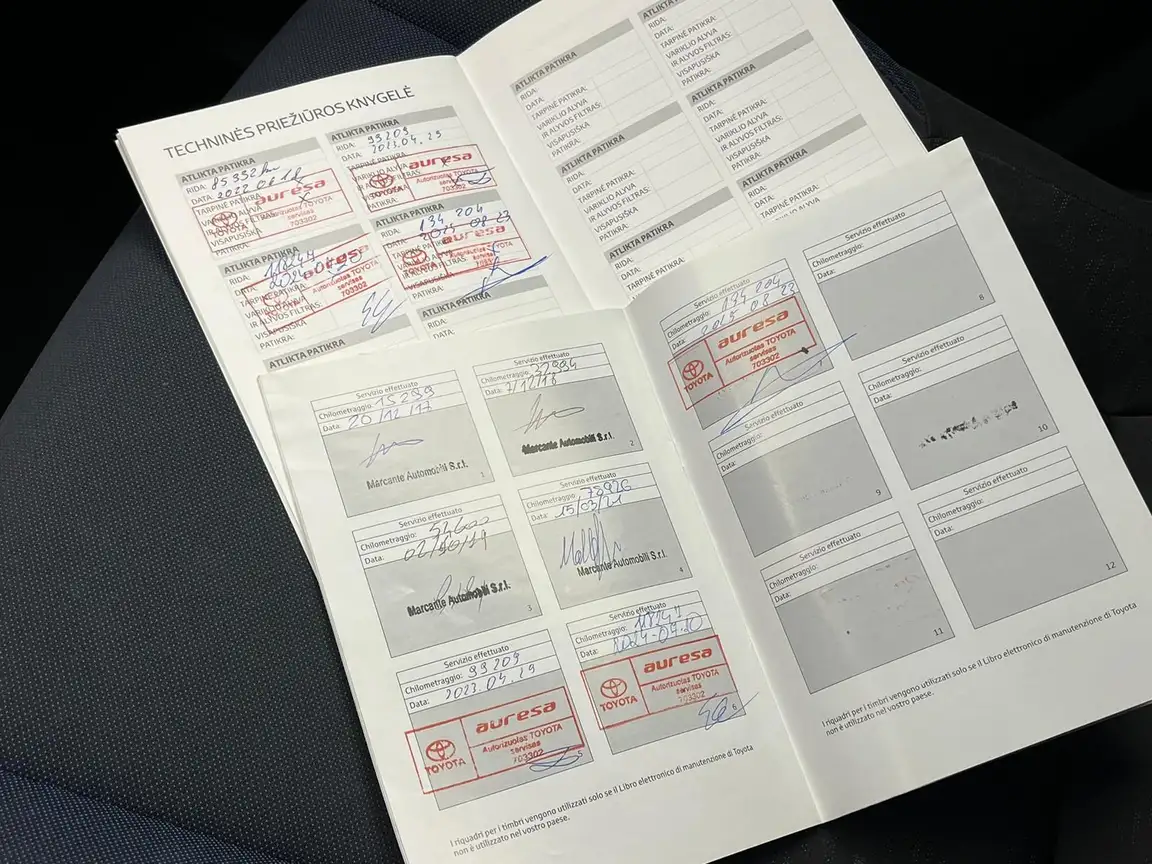 TECHNINĖS PRIEŽIŪROS KNYGELĖ
ATLIKTA PATIKRA
RIDA: 85 332 km
DATA: 2022 08 18
TARPINĖ PATIKRA:
VISAPUSIŠKA
PATIKRA:
auresa
TOYOTA
Autorizuotas TOYOTA
servisas
703302
ATLIKTA PATIKRA
RIDA: 99209
DATA: 2023.04.29
TARPINĖ PATIKRA:
auresa
TOYOTA
Autorizuotas TOYOTA
servisas
703302
ATLIKTA PATIKRA
RIDA:
DATA:
TARPINĖ PATIKRA:
VARIKLIO ALYVA
IR ALYVOS FILTRAS:
VISAPUSIŠKA
PATIKRA:
auresa
Autorizuotas TOYOTA
servisas
703302
ATLIKTA PATIKRA
RIDA: 134 204
DATA: 2025-08-23
PATIKRA:
auresa
servisas
703302
ATLIKTA PATIKRA
ATLIKTA PATIKRA
RIDA:
DATA:
ATLIKTA PATIKRA
RIDA:
DATA:
TARPINĖ PATIKRA:
VARIKLIO ALYVA
IR ALYVOS FILTRAS:
VISAPUSIŠKA
PATIKRA:
ATLIKTA PATIKRA
RIDA:
DATA:
TARPINĖ PATIKRA:
VARIKLIO ALYVA
IR ALYVOS FILTRAS:
VISAPUSIŠKA
PATIKRA:
ATLIKTA PATIKRA
RIDA:
DATA:
TARPINĖ PATIKRA:
VARIKLIO ALYVA
IR ALYVOS FILTRAS:
VISAPUSIŠKA
PATIKRA:
ATLIKTA PATIKRA
RIDA:
DATA:
TARPINĖ PATIKRA:
VARIKLIO ALYVA
IR ALYVOS FILTRAS:
VISAPUSIŠKA
PATIKRA:
ATLIKTA PATIKRA
RIDA:
DATA:
TARPINĖ PATIKRA:
ATLIKTA PATIKRA
RIDA:
DATA:
TARPINĖ PATIKRA:
VARIKLIO ALYVA
Servizio effettuato
Chilometraggio: 15299
Data: 20/12/17
Marcante Automobili S.r.l.
1
Servizio effettuato
Chilometraggio: 37994
Data: 7/12/18
Marcante Automobili S.r.l.
2
Servizio effettuato
Chilometraggio: 52600
Data: 02/10/19
Marcante Automobili S.r.l.
3
Servizio effettuato
Chilometraggio: 78926
Data: 15/03/21
Marcante Automobili S.r.l.
4
Servizio effettuato
Chilometraggio: 99209
Data: 2023.04.29
auresa
TOYOTA
Autorizuotas TOYOTA
servisas
703302
5
Servizio effettuato
Chilometraggio:
Data:
auresa
TOYOTA
Autorizuotas TOYOTA
servisas
703302
6
I riquadri per i timbri vengono utilizzati solo se il Libro elettronico di manutenzione di Toyota
non è utilizzato nel vostro paese.
Servizio effettuato
Chilometraggio: 134 204
Data: 2025 08 23
auresa
TOYOTA
Autorizuotas TOYOTA
servisas
703302
Servizio effettuato
Chilometraggio:
Data:
8
Servizio effettuato
Chilometraggio:
Data:
9
Servizio effettuato
Chilometraggio:
Data:
10
Servizio effettuato
Chilometraggio:
Data:
11
Servizio effettuato
Chilometraggio:
Data:
12
I riquadri per i timbri vengono utilizzati solo se il Libro elettronico di manutenzione di Toyota
non è utilizzato nel vostro paese.